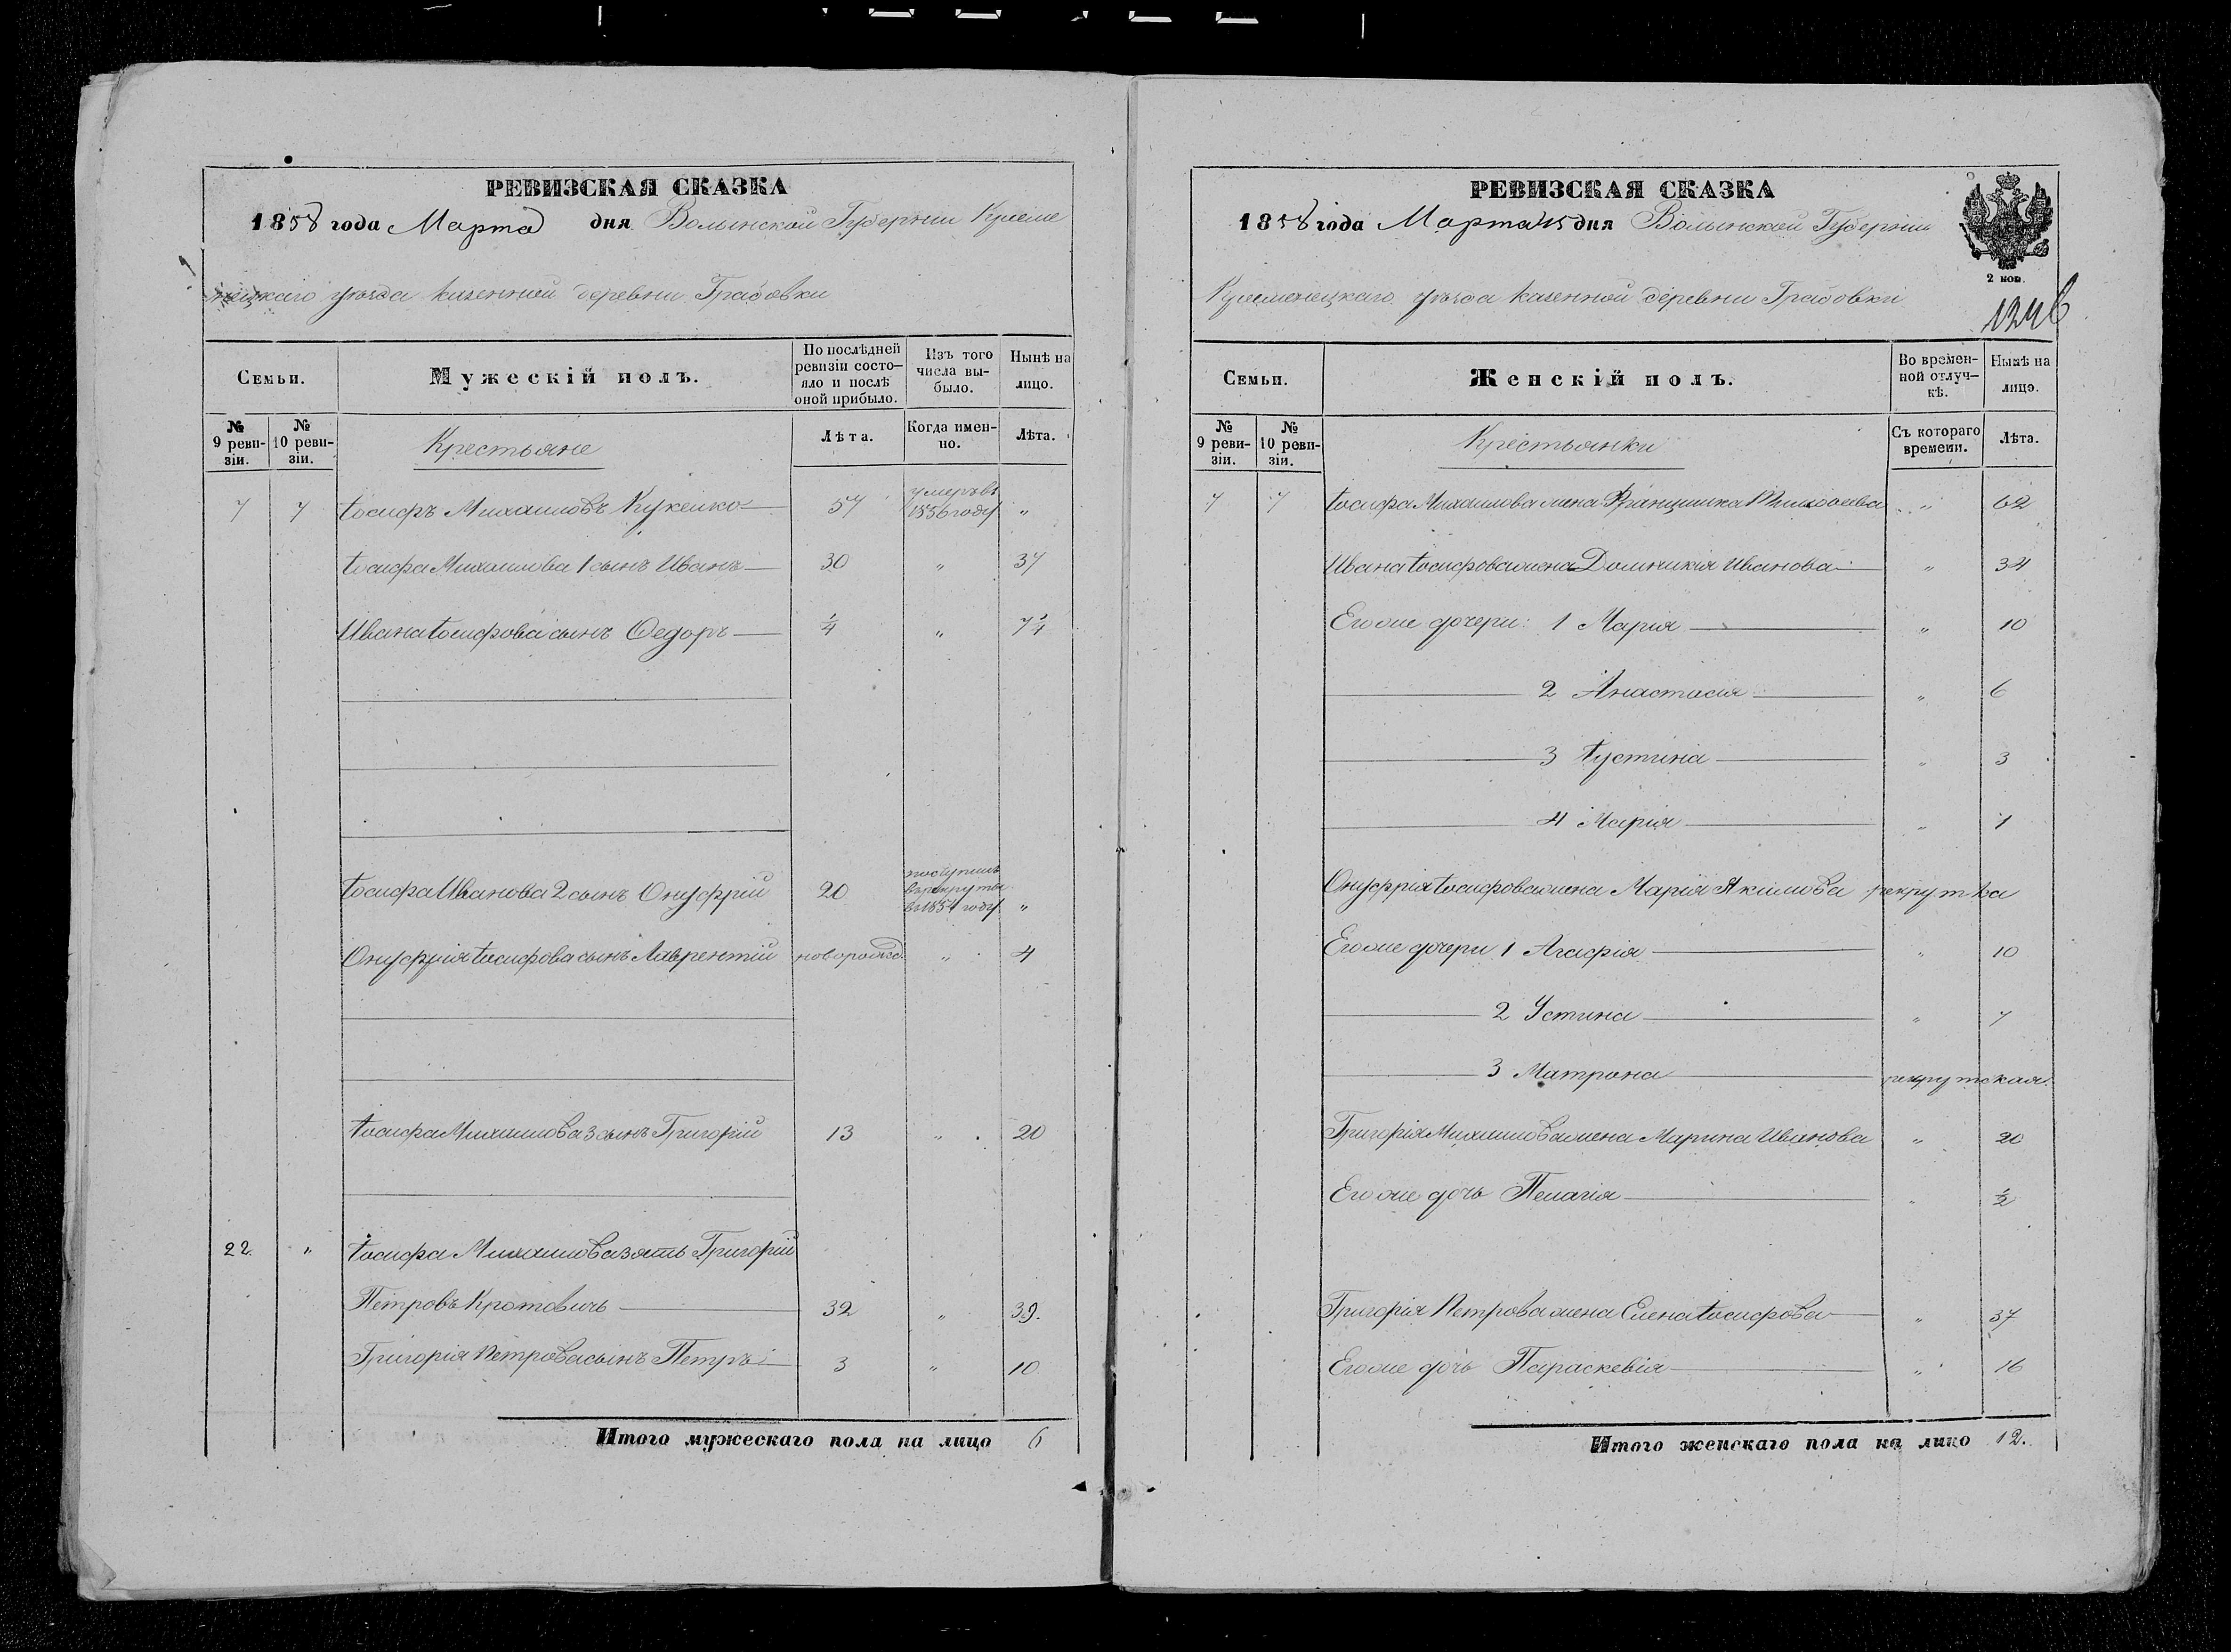 РЕВИЗСКАЯ СКАЗКА
1858 года Марта дня Волынской Губерніи Креме
нецкаго уѣзда казенной деревни Грабовки
Семьи.
Мужескій полъ.
По послѣдней ревизіи состояло и послѣ оной прибыло.
Изъ того числа выбыло.
Нынѣ на лицо.
№ 9 ревизіи.
№ 10 ревизіи.
Крестьяне
Лѣта.
Когда именно.
Лѣта.
7 7 Іосифъ Михаиловъ Кукейко 57 умеръ въ 1856 году "
Іосифа Михаилова 1 сынъ Иванъ 30 " 37
Ивана Іосифова сынъ Федоръ 1/4 " 7 1/4
Іосифа Иванова 2 сынъ Онуфрій 20 поступилъ въ рекруты въ 1854 году "
Онуфрія Іосифова сынъ Лаврентій новорожд. " 4
Іосифа Михаилова 3 сынъ Григорій 13 " 20
22. " Іосифа Михаилова зять Григорій
Петровъ Кротовичь 32 " 39.
Григорія Петрова сынъ Петръ 3 " 10
Итого мужескаго пола на лицо 6
РЕВИЗСКАЯ СКАЗКА
1858 года Марта 15 дня Волынской Губерніи
2 коп.
Кременецкаго уѣзда казенной деревни Грабовки
Семьи.
Женскій полъ.
Во временной отлучкѣ.
Нынѣ на лицо.
№ 9 ревизіи.
№ 10 ревизіи.
Крестьянки
Съ котораго времени.
Лѣта.
7 7 Іосифа Михаилова жена Францишка " 62
Ивана Іосифова жена Домникія Иванова " 34
Его же дочери: 1 Марія " 10
2 Анастасія " 6
3 Іустина " 3
4 Марія " 1
Онуфрія Іосифова жена Марія Якимова рекрутка
Его же дочери 1 Агафія " 10
2 Устина " 7
3 Матрона рекрутская.
Григорія Михаилова жена Марина Иванова " 20
Его же дочь Пелагія " 1/2
Григорія Петрова жена Елена Іосифова " 37
Его же дочь Параскевія " 16
Итого женскаго пола на лицо 12.